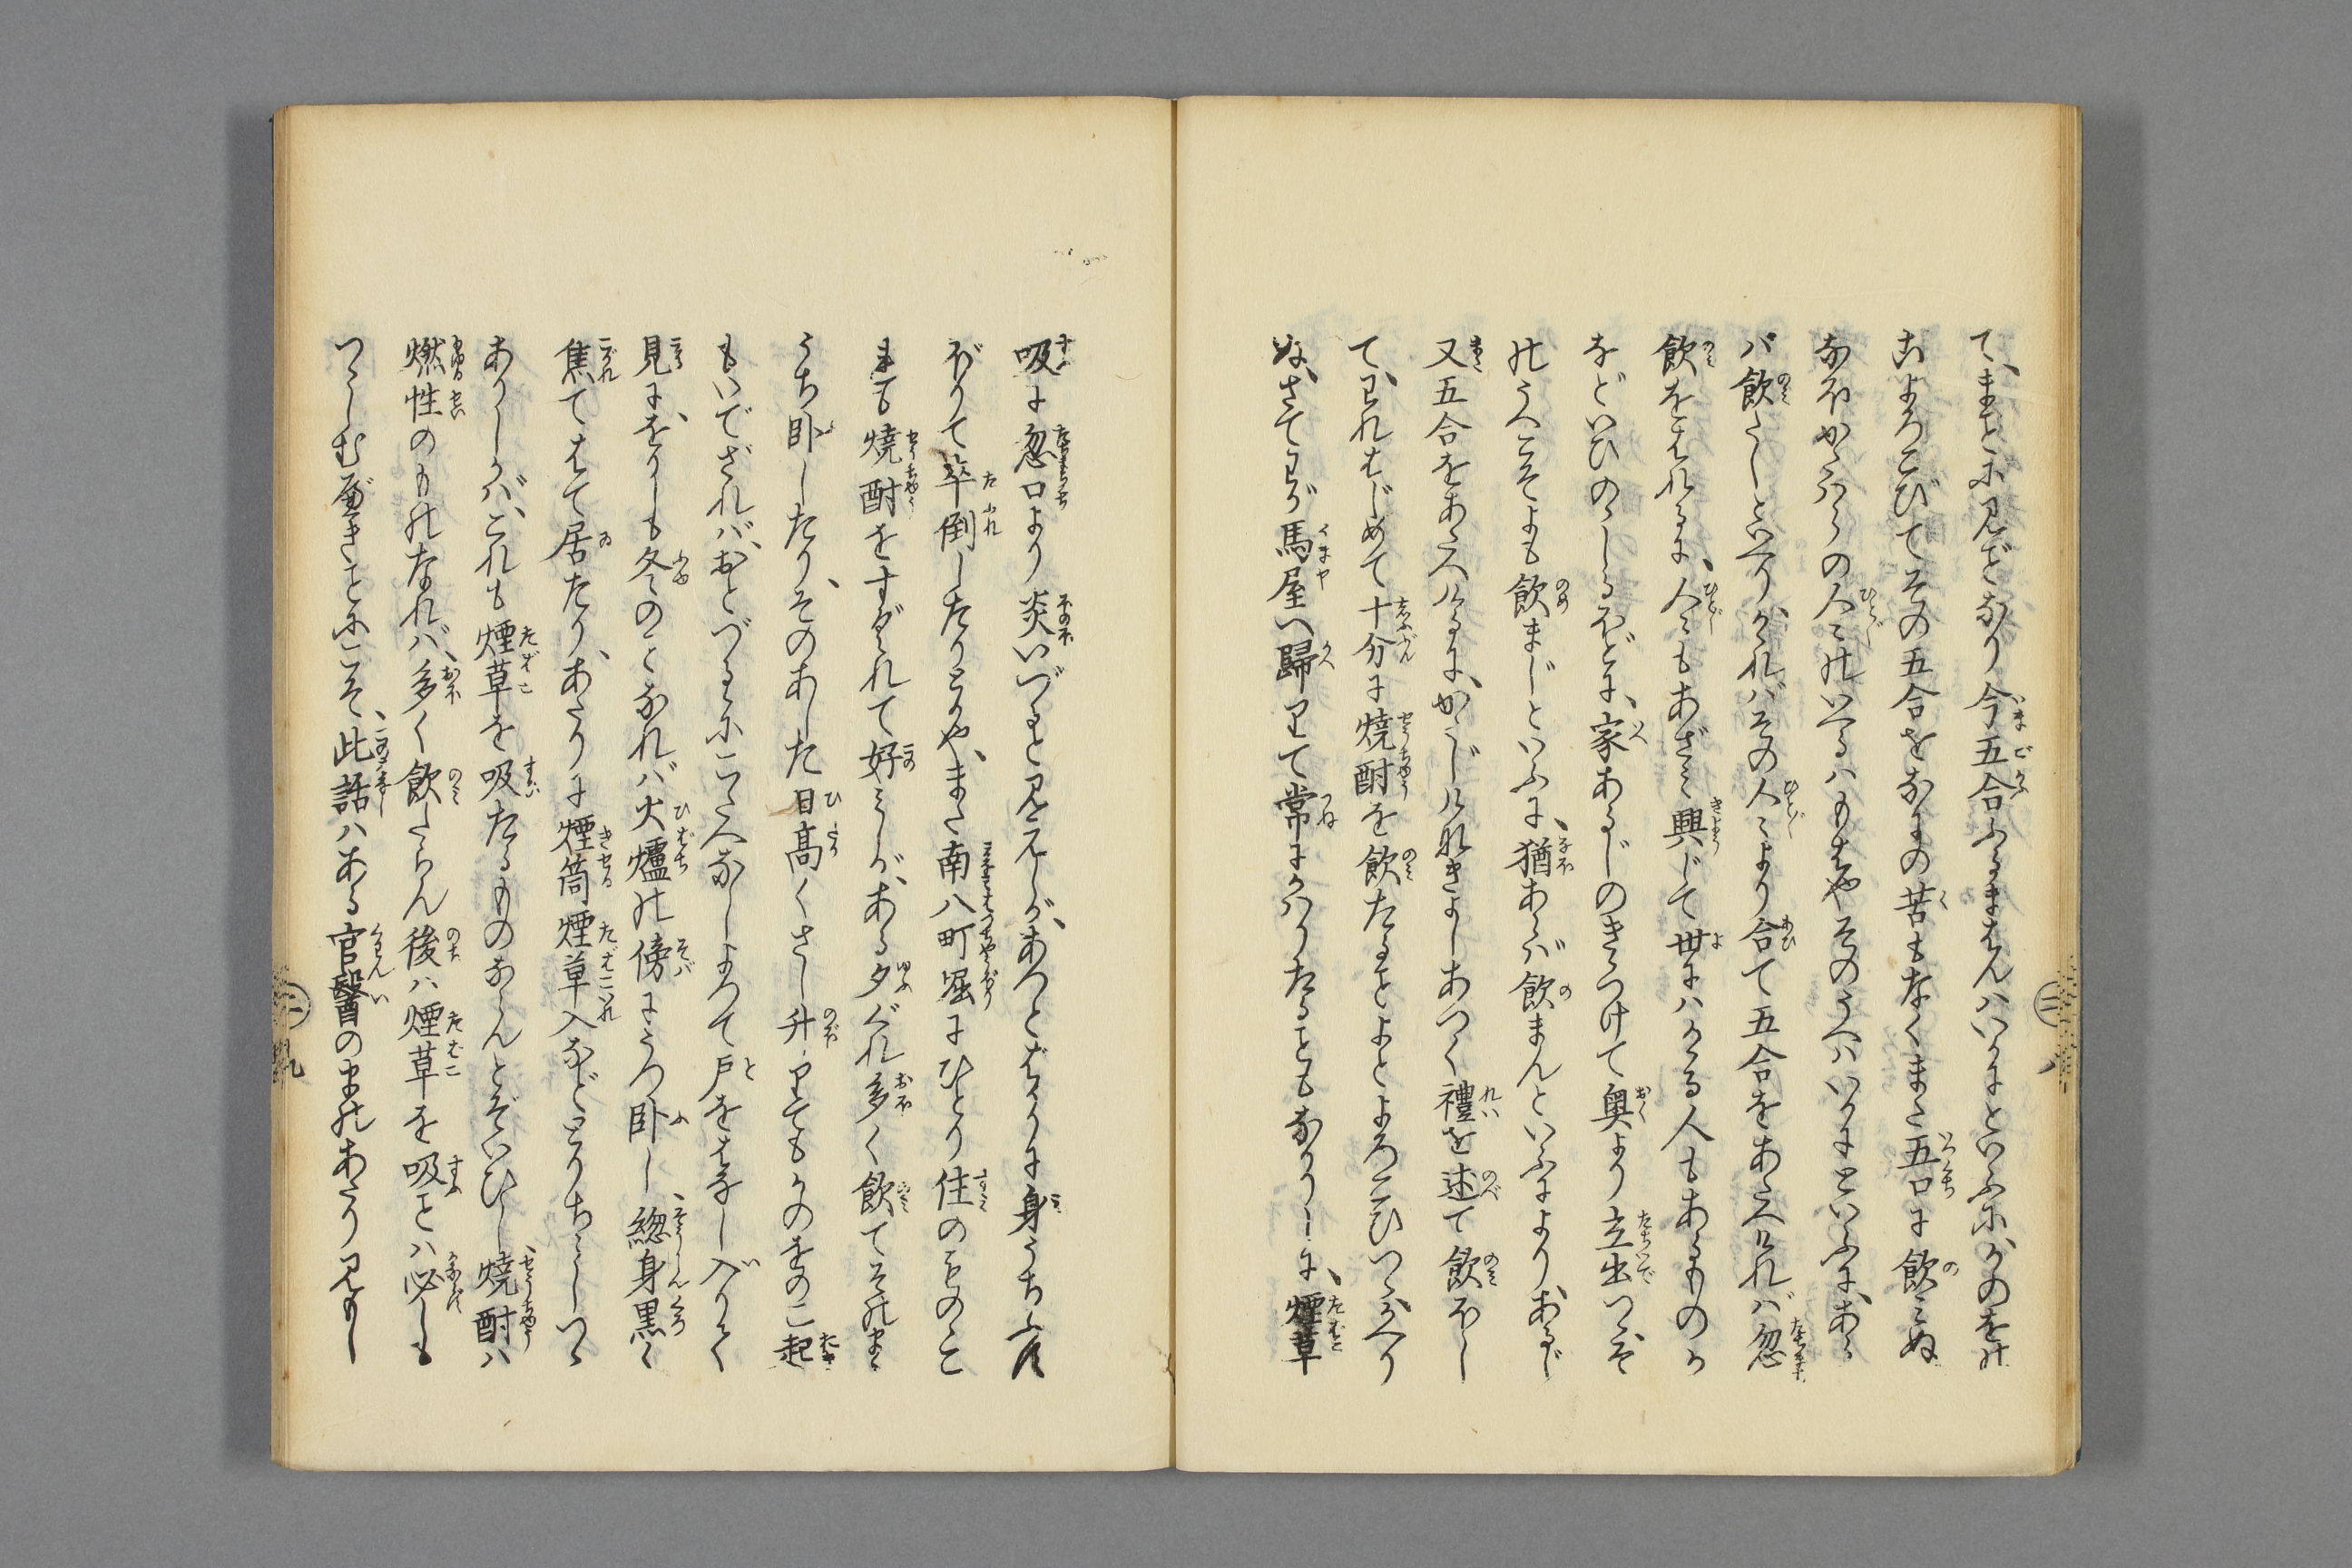 て、まことに見ごとなり今五合ふるまはんハいかにといふに、かのをの
こよろこびてその五合をなにの苦もなくまた五口に飲ミぬ
なほかたハらの人〻のいへるハもはやそのうへハいかにといふに、あら
バ飲たしといへりければその人〻より合て五合をあたへければ忽
飲をはれるに、人〻もあざミ興じて世にハかゝる人もあるものか
などいひのゝしるほどに、家あるじのきゝつけて奥より立出つゝぞ
のうへこそよも飲まじといふに、猶あらバ飲まんといふによりあるじ
又五合をあたへけるに、かたじけなきよしあつく禮を述て飲ほし
て、われはじめて十分に焼酎を飲たることよとよろこひつゝかへり
ぬ、さてわが馬屋へ歸りて常にかハりたることもなかりしに、煙草
吸に忽口より炎いづると見えしが、あつとばかりに身うちふす
ぼりて卒倒したりとかや、また南八町堀にひとり住のをのこ
是も焼酎をすぐれて好ミしが、ある夕ぐれ多く飲てそのまゝ
うち卧したり、そのあした日高くさし升りてもかのをのこ起
もいでざれバ、おとづるゝにこたへなしよつて戸をはなし入りて
見に、をりしも冬のことなれバ火爐の傍にうつ卧し、緫身黒く
焦てはて居たり、あたりに煙筒煙草入などとりちらしつゝ
ありしかバ、これも煙草を吸たるものならんとぞいひし、焼酎ハ
燃性のものなれバ、多く飲たらん後ハ煙草を吸ことハ必しも
つゝしむべきことにこそ、此話ハある官醫のまのあたり見もし